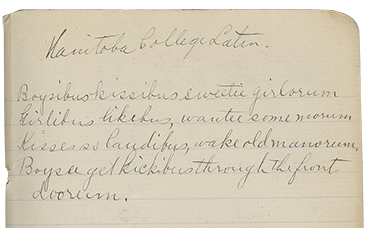 Manitoba College Latin.
Boysibus kissibus sweetie girlorum
Girlibus likibus, wantie some morum
Kisses so laudibus, wake old manorum,
Boysee get kickibus through the front
doorum.